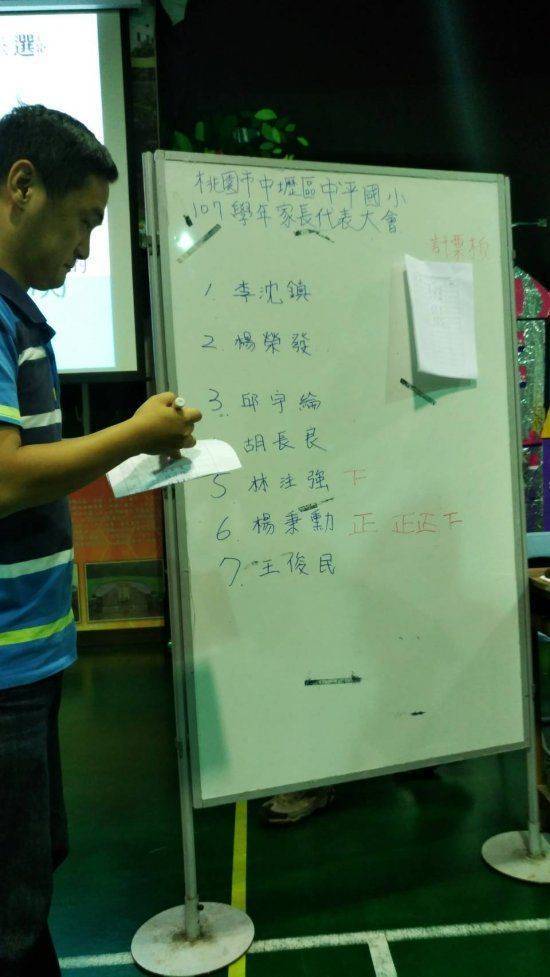 選
桃園市中壢區中平國小
107學年家長代表大會
計票板
1. 李沈鎮
2. 楊榮發
3. 邱宇綸
胡長良
5 林注強 下
6. 楊秉勳 正 正正下
7. 王俊民